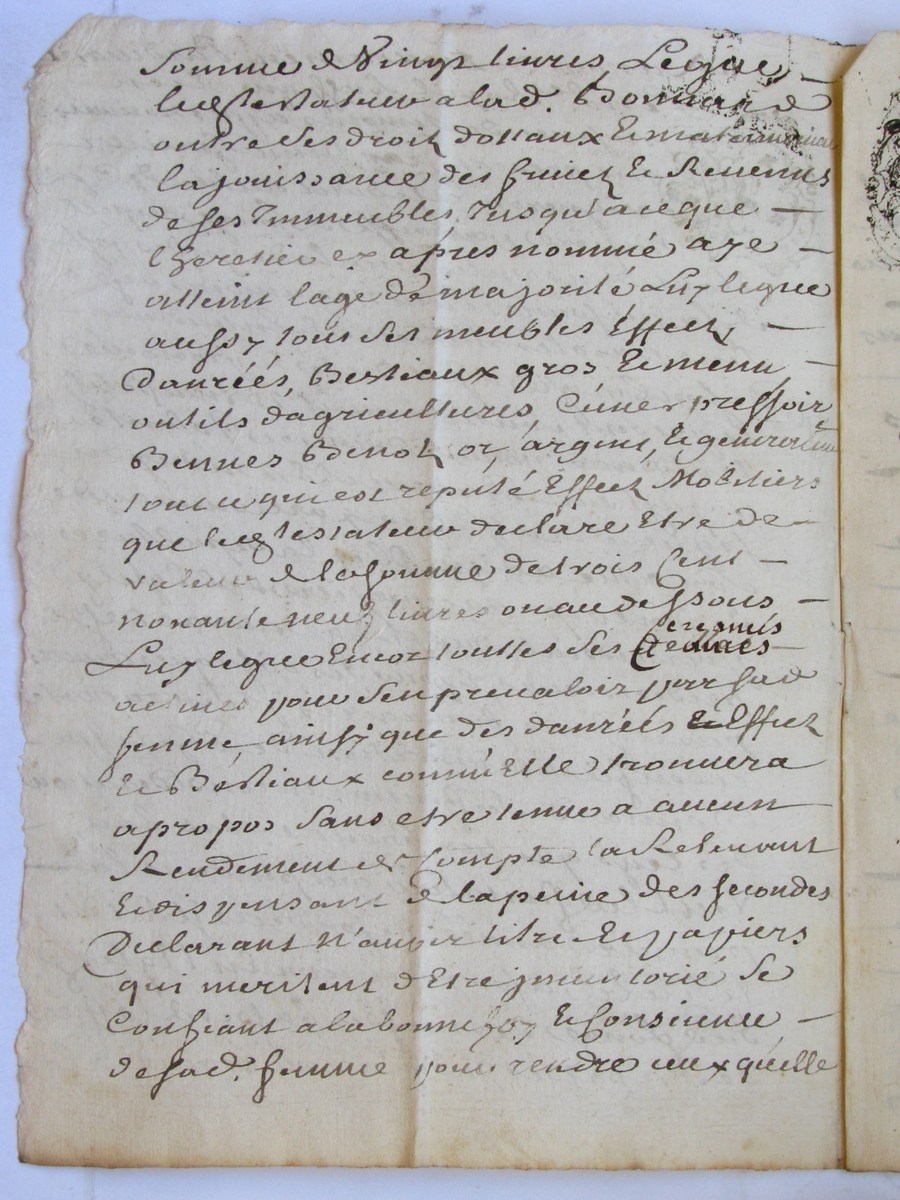 somme de Vingt livres, Legue
led. testateur a lad. Bonnard
outre ses droit dottaux Et matrimoniaux
la jouissance des fruicts Et Revenus
de ses Immeubles, Jusqu'a ce que
l'heretier cy après nommé aye
atteint l'age de majorité Luy legue
aussy tous ses meubles Effects,
Danréés, Bestiaux gros Et menu,
outils dagricultures, Cuve pressoir
Bennes Benot, or, argent, Et generalement
tout ce qui est reputé Effects Mobiliers
que led. testateur declare Etre de
valeur de la somme de trois Cent
nonante neuf livres ou au dessous
Luy legue Encor touttes ses
actives pour s'en prevaloir par sad.
femme, ainsy que des danréés Et Effects
Et Béstiaux comme Elle trouvera
a propos sans etre tenue a aucun
Rendement de Compte la Relevant
Et dispensant de la peine des secondes
Declarant n'avoir titre Et papiers
qui meritent d'Etre jnventorié se
Confiant a la bonne foy Et Consience
de sad. femme pour rendre ceux qu'elle